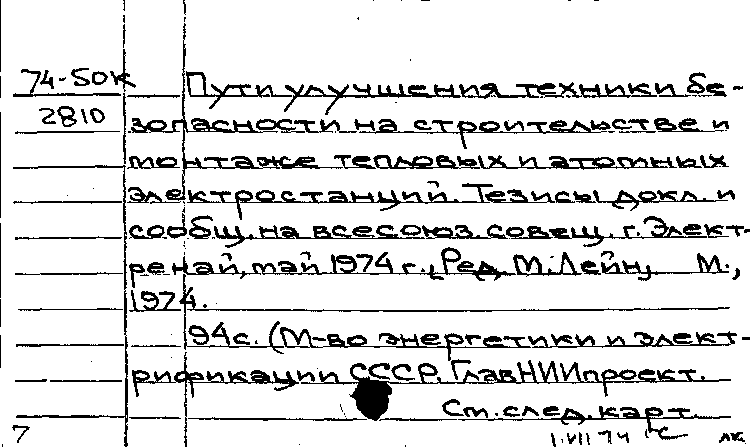 74-50к Пути улучшения техники бе-
2810 зопасности на строительстве и
монтаже тепловых и атомных
электростанций. Тезисы докл. и
сообщ. на всесоюз. совещ. г. Элект-
ренай, май 1974 г., Ред. М. Лейн, М.,
1974.
94с. (М-во энергетики и элект-
рификации СССР. ГлавНИИпроект.
См. след. карт.
7 1.VII 74